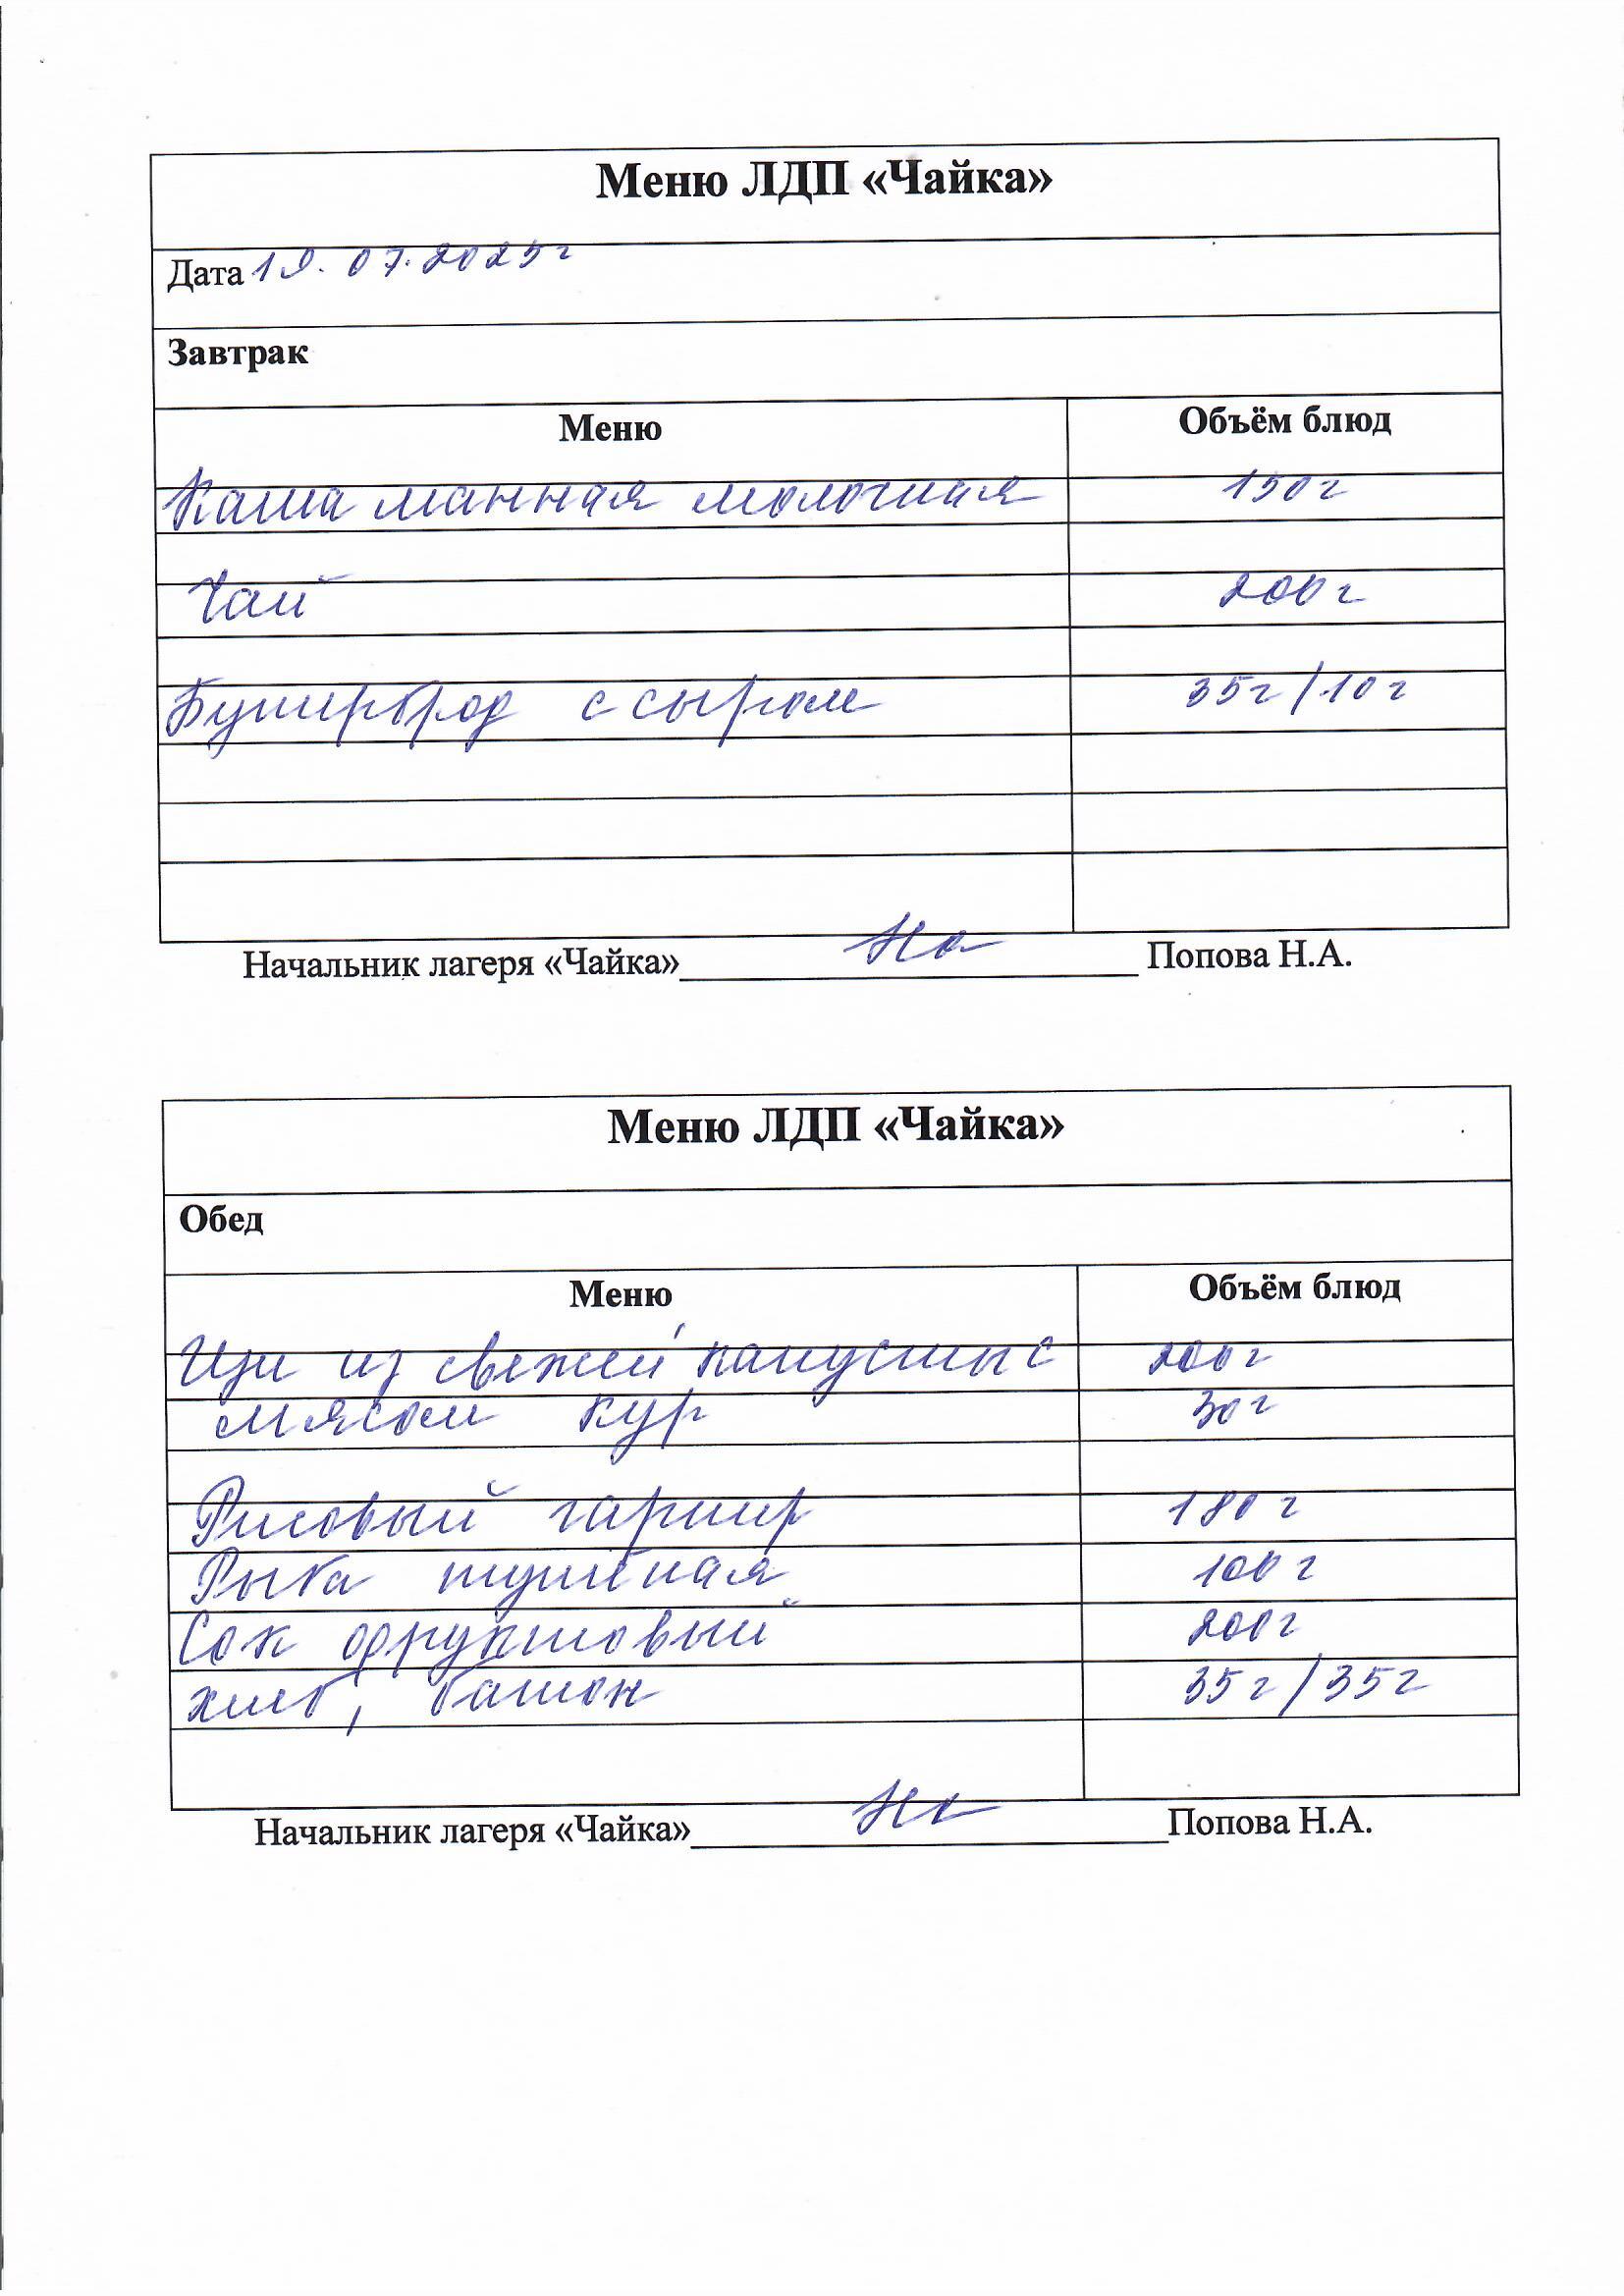 Меню ЛДП «Чайка»
Дата 19.07.2025г
Завтрак
Меню Объём блюд
Каша манная молочная 150г
Чай 200г
Бутерброд с сыром 35г/10г
Начальник лагеря «Чайка» Попова Н.А.
Меню ЛДП «Чайка»
Обед
Меню Объём блюд
Щи из свежей капусты с 200г
мясом кур 30г
Рисовый гарнир 180г
Рыба тушёная 100г
Сок фруктовый 200г
хлеб, батон 35г/35г
Начальник лагеря «Чайка» Попова Н.А.